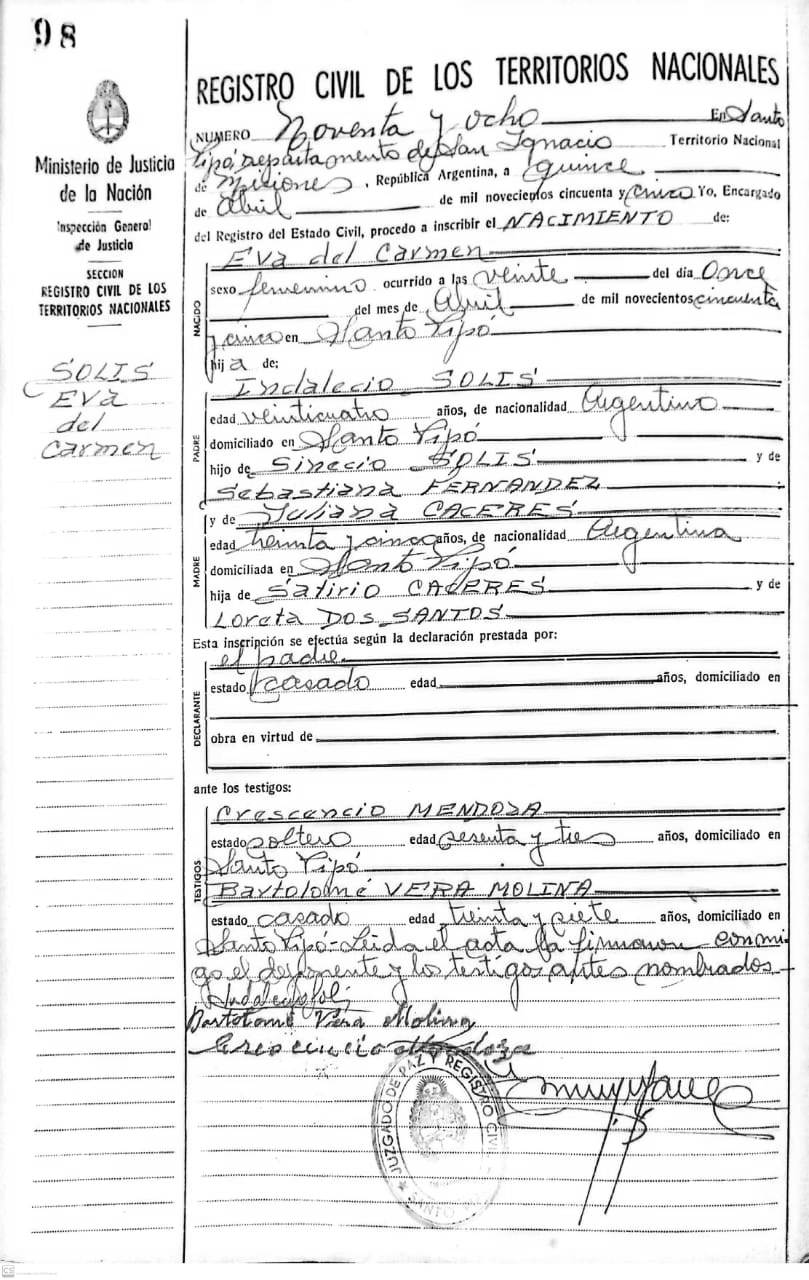 98
Ministerio de Justicia
de la Nación
Inspección General
de Justicia
SECCION
REGISTRO CIVIL DE LOS
TERRITORIOS NACIONALES
SOLIS
EVA
del
Carmen
REGISTRO CIVIL DE LOS TERRITORIOS NACIONALES
NUMERO Noventa y ocho En Santo
Pipó departamento de San Ignacio Territorio Nacional
de Misiones, República Argentina, a quince
de Abril de mil novecientos cincuenta y cinco Yo, Encargado
del Registro del Estado Civil, procedo a inscribir el NACIMIENTO de:
NACIDO
Eva del Carmen
sexo femenino ocurrido a las veinte del día Once
del mes de Abril de mil novecientos cincuenta
y cinco en Santo Pipó
hija de:
PADRE
Indalecio SOLIS
edad veinticuatro años, de nacionalidad Argentino
domiciliado en Santo Pipó
hijo de Sinecio SOLIS y de
Sebastiana FERNANDEZ
MADRE
y de Juliana CACERES
edad treinta y cinco años, de nacionalidad Argentina
domiciliada en Santo Pipó
hija de Satirio CACERES y de
Loreta DOS SANTOS
Esta inscripción se efectúa según la declaración prestada por:
DECLARANTE
el padre
estado casado edad años, domiciliado en
obra en virtud de
ante los testigos:
TESTIGOS
Crescencio MENDOZA
estado soltero edad sesenta y tres años, domiciliado en
Santo Pipó
Bartolomé VERA MOLINA
estado casado edad treinta y siete años, domiciliado en
Santo Pipó-Leida el acta la firmaron conmi
go el deponente y los testigos antes nombrados
Bartolomé Vera Molina
Crescencio Mendoza
JUZGADO DE PAZ Y REGISTRO CIVIL
SANTO
CS